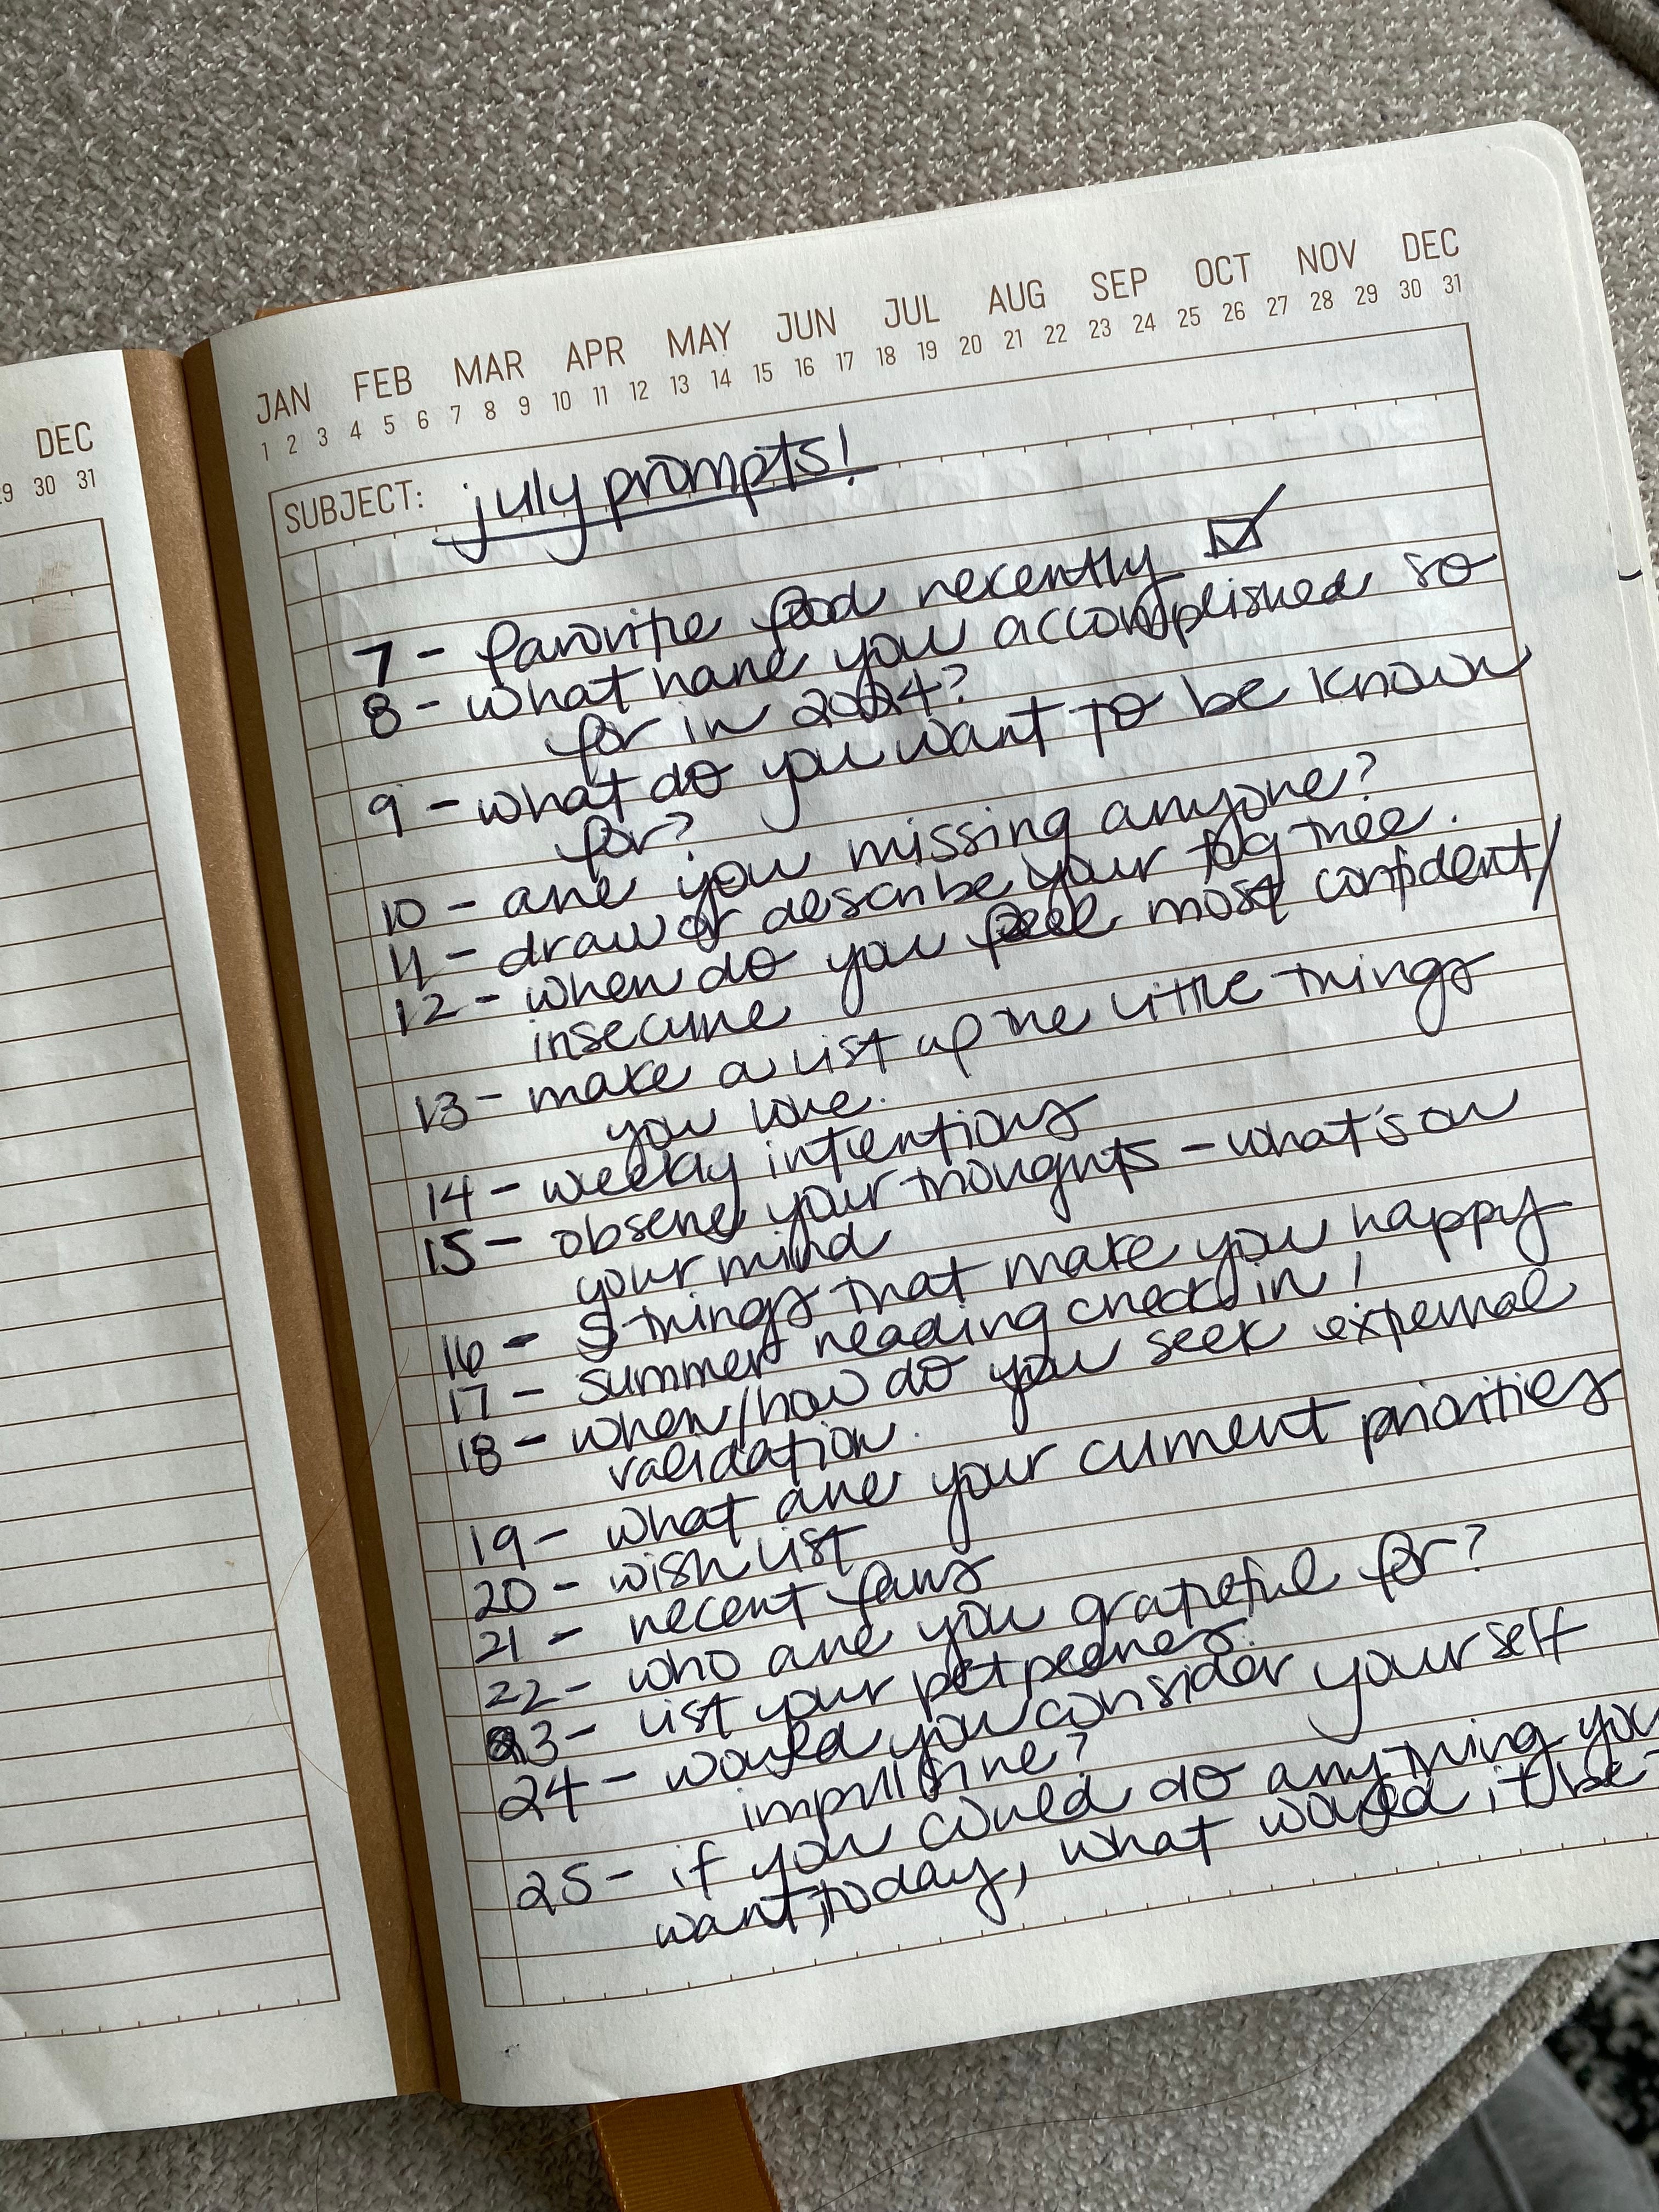 DEC
29 30 31
JAN FEB MAR APR MAY JUN JUL AUG SEP OCT NOV DEC
1 2 3 4 5 6 7 8 9 10 11 12 13 14 15 16 17 18 19 20 21 22 23 24 25 26 27 28 29 30 31
SUBJECT: july prompts!
7 - favorite food recently ☑
8 - what have you accomplished so
for in 2024?
9 - what do you want to be known
for?
10 - are you missing anyone?
11 - draw or describe your fig tree.
12 - when do you feel most confident/
insecure
13 - make a list of the little things
you love.
14 - weekly intentions
15 - observe your thoughts - what's on
your mind
16 - 5 things that make you happy
17 - summer reading check in!
18 - when/how do you seek external
validation.
19 - what are your current priorities
20 - wish list
21 - recent favs
22 - who are you grateful for?
23 - list your pet peeves.
24 - would you consider yourself
impulsive?
25 - if you could do anything you
want, today, what would it be?